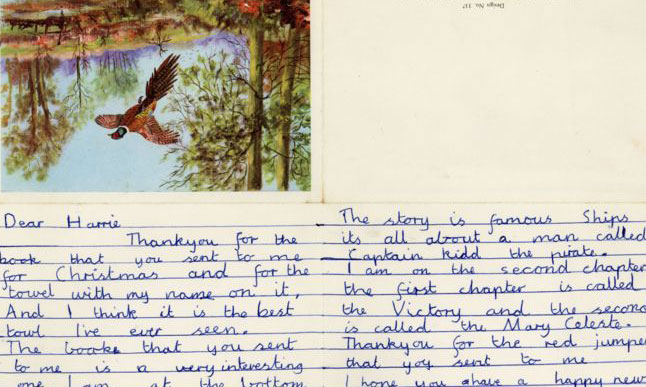 Design No. 117
Dear Harrie
Thankyou for the
book that you sent to me
for Christmas and for the
towel with my name on it,
And I think it is the best
towl I've ever seen.
The books that you sent
to me is a very interesting
one I am at the bottom
The story is famous Ships
its all about a man called
Captain kidd the pirate.
I am on the second chapter
the first chapter is called
the Victory and the second
is called the Mary Celeste.
Thankyou for the red jumper
that yoy sent to me
I hope you ahave a happy new